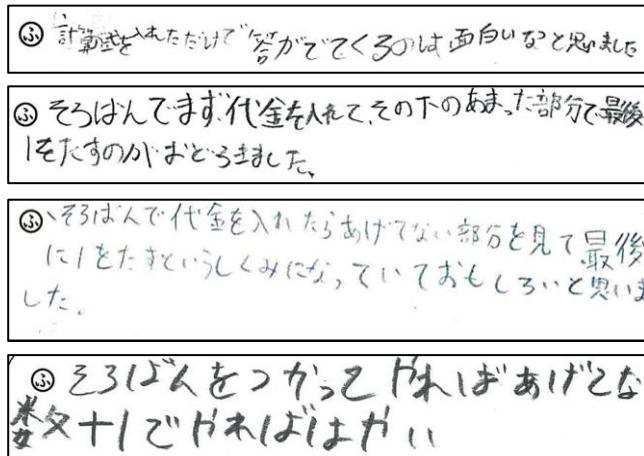 ふ 計算式を入れただけで答がでてくるのは面白いなと思いました
ふ そろばんでまず、代金を入れて、その下のあまった部分で最後
1をたすのがおどろきました。
ふ、そろばんで代金を入れたらあげてない部分を見て最後
に1をたすというしくみになっていておもしろいと思いま
した。
ふ そろばんをつかってやればあげてな
数+1でやればはやい